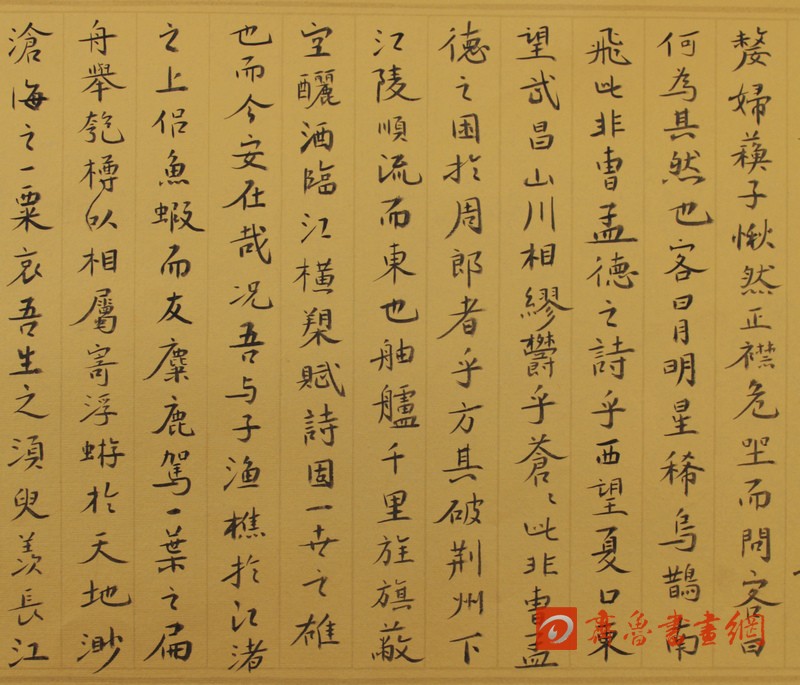 嫠婦蘓子愀然正襟危坐而問客曰
何為其然也客曰月明星稀烏鵲南
飛此非曹孟德之詩乎西望夏口東
望武昌山川相繆欝乎蒼〻此非曹孟
德之困於周郎者乎方其破荆州下
江陵順流而東也舳艫千里旌旗蔽
空釃酒臨江橫槊賦詩固一世之雄
也而今安在哉况吾与子漁樵於江渚
之上侶魚蝦而友麋鹿駕一葉之扁
舟舉匏樽以相屬寄浮蝣於天地渺
滄海之一粟哀吾生之須臾羨長江
齊魯書畫網